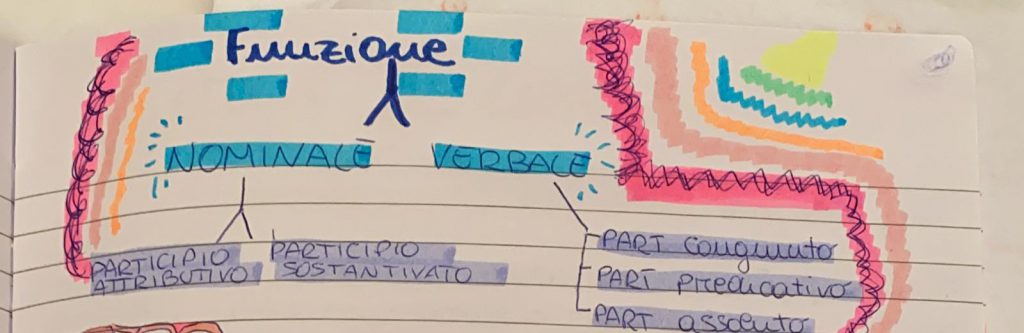 Funzione
NOMINALE VERBALE
PARTICIPIO
ATTRIBUTIVO
PARTICIPIO
SOSTANTIVATO
PART congiunto
PART predicativo
PART assoluto